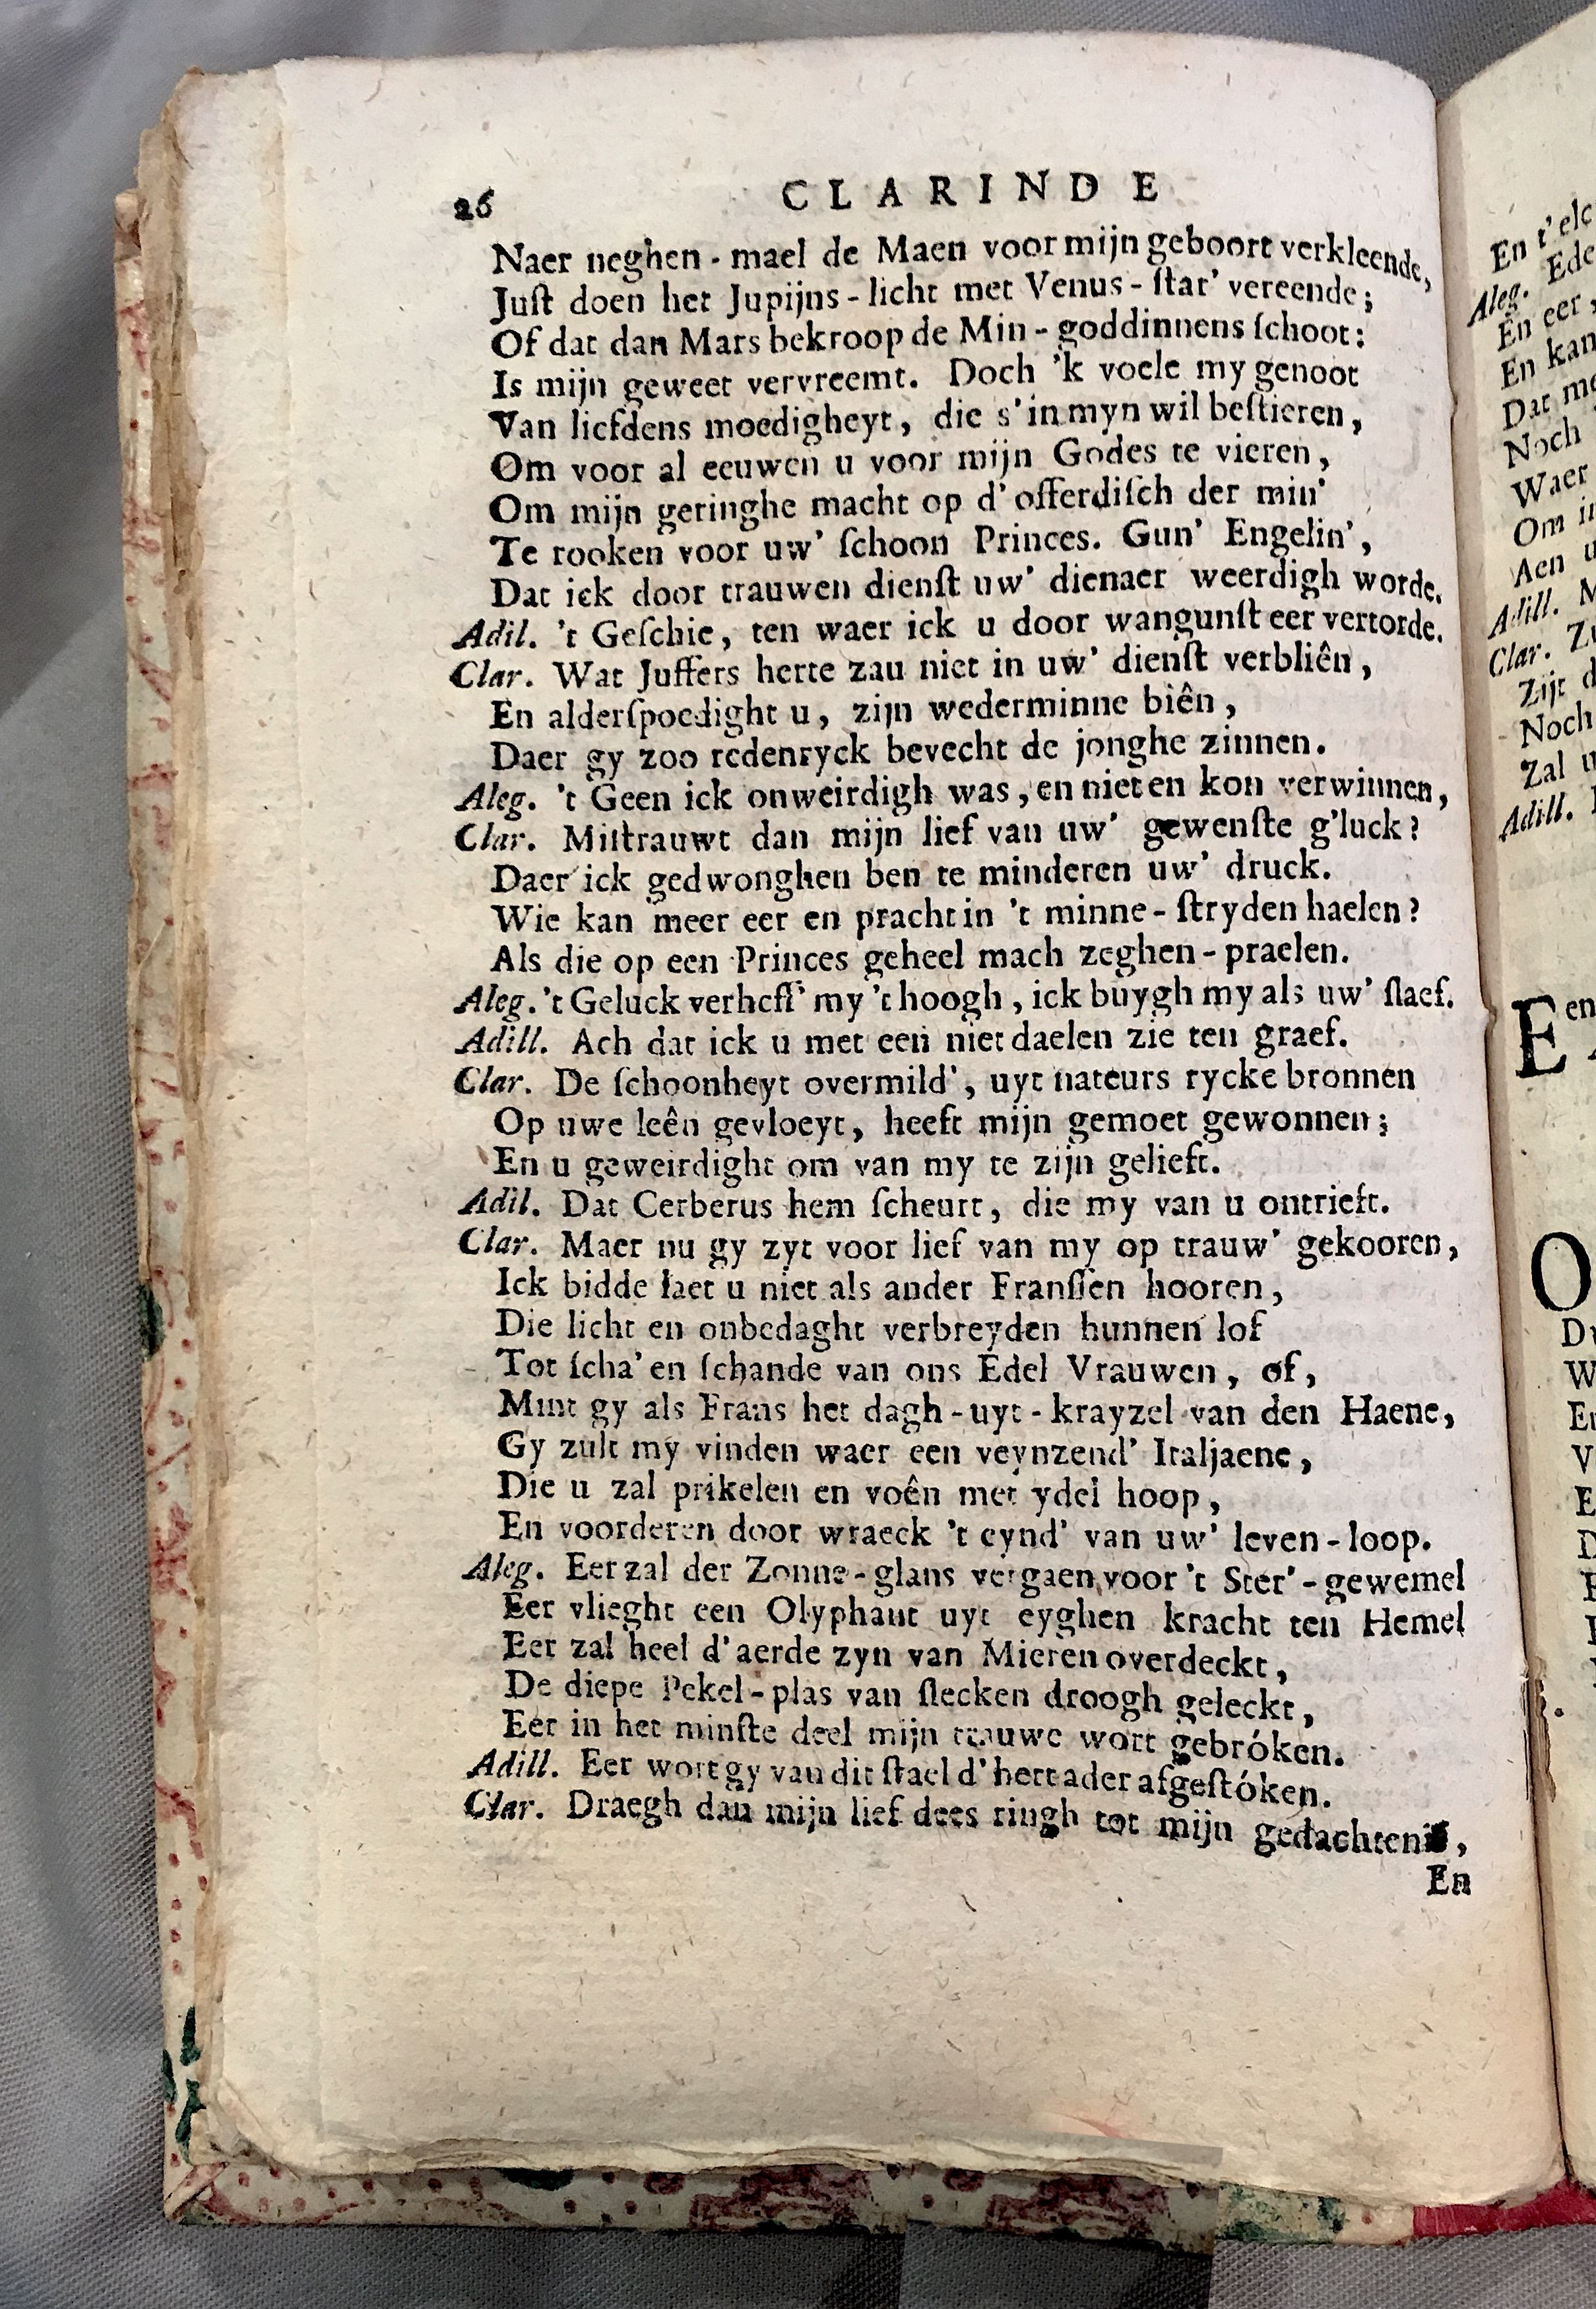 26 CLARINDE
Naer neghen-mael de Maen voor mijn geboort verkleende,
Juſt doen het Jupijns-licht met Venus-ſtar' vereende;
Of dat dan Mars bekroop de Min-goddinnens ſchoot:
Is mijn geweet vervreemt. Doch 'k voele my genoot
Van liefdens moedigheyt, die s'in myn wil beſtieren,
Om voor al eeuwen u voor mijn Godes te vieren,
Om mijn geringhe macht op d'offerdiſch der min'
Te rooken voor uw' ſchoon Princes. Gun' Engelin',
Dat ick door trauwen dienſt uw' dienaer weerdigh worde.
Adil. 't Geſchie, ten waer ick u door wangunſt eer vertorde.
Clar. Wat Juffers herte zau niet in uw' dienſt verbliên,
En alderſpoedight u, zijn wederminne biên,
Daer gy zoo redenryck bevecht de jonghe zinnen.
Aleg. 't Geen ick onweirdigh was, en niet en kon verwinnen,
Clar. Miſtrauwt dan mijn lief van uw' gewenſte g'luck?
Daer ick gedwonghen ben te minderen uw' druck.
Wie kan meer eer en pracht in 't minne-ſtryden haelen?
Als die op een Princes geheel mach zeghen-praelen.
Aleg. 't Geluck verheff' my 't hoogh, ick buygh my als uw' ſlaef.
Adill. Ach dat ick u met een niet daelen zie ten graef.
Clar. De ſchoonheyt overmild', uyt nateurs rycke bronnen
Op uwe leên gevloeyt, heeft mijn gemoet gewonnen;
En u geweirdight om van my te zijn gelieft.
Adil. Dat Cerberus hem ſcheurt, die my van u ontrieft.
Clar. Maer nu gy zyt voor lief van my op trauw' gekooren,
Ick bidde laet u niet als ander Franſſen hooren,
Die licht en onbedaght verbreyden hunnen lof
Tot ſcha' en ſchande van ons Edel Vrauwen, of,
Mint gy als Frans het dagh-uyt-krayzel van den Haene,
Gy zult my vinden waer een veynzend' Italjaene,
Die u zal prikelen en voên met ydel hoop,
En voorderen door wraeck 't eynd' van uw' leven-loop.
Aleg. Eer zal der Zonne-glans vergaen voor 't Ster'-gewemel
Eer vlieght een Olyphant uyt eyghen kracht ten Hemel
Eer zal heel d'aerde zyn van Mieren overdeckt,
De diepe Pekel-plas van ſlecken droogh geleckt,
Eer in het minſte deel mijn trauwe wort gebróken.
Adill. Eer wort gy van dit ſtael d'hert ader afgeſtóken.
Clar. Draegh dan mijn lief dees ringh tot mijn gedachtenis,
En
En t'elc
Ede
Aleg.
En eer,
En kan
Dat me
Noch
Waer
Om
Aen
Adill.
Clar.
Zijt
Noch
Zal
Adill.
Een